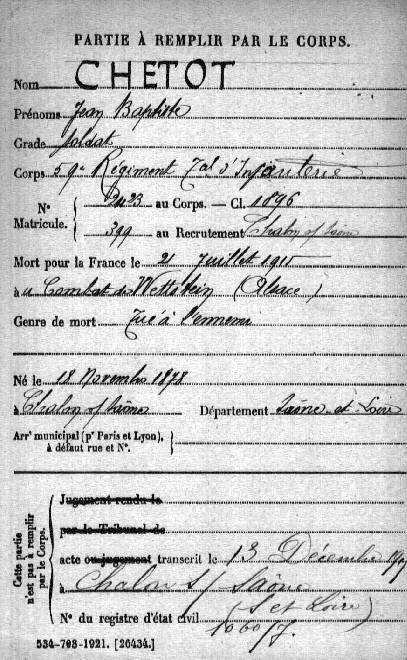 PARTIE À REMPLIR PAR LE CORPS.
Nom CHETOT
Prénoms Jean Baptiste
Grade soldat
Corps 59e Régiment Tal d'Infanterie
N° Matricule. 2423 au Corps. — Cl. 1896
399 au Recrutement Chalon s/ Saône
Mort pour la France le 21 Juillet 1915
à u Combat de Wettstein (Alsace)
Genre de mort Tué à l'ennemi
Né le 18 Novembre 1878
à Chalon s/ Saône Département Saône-et-Loire
Arrt municipal (pr Paris et Lyon), à défaut rue et N°.
Cette partie n'est pas à remplir par le Corps.
Jugement rendu le
par le Tribunal de
acte ou jugement transcrit le 13 Décembre
à Chalon s/ Saône
(S et Loire)
N° du registre d'état civil
534-708-1921. [26434.]